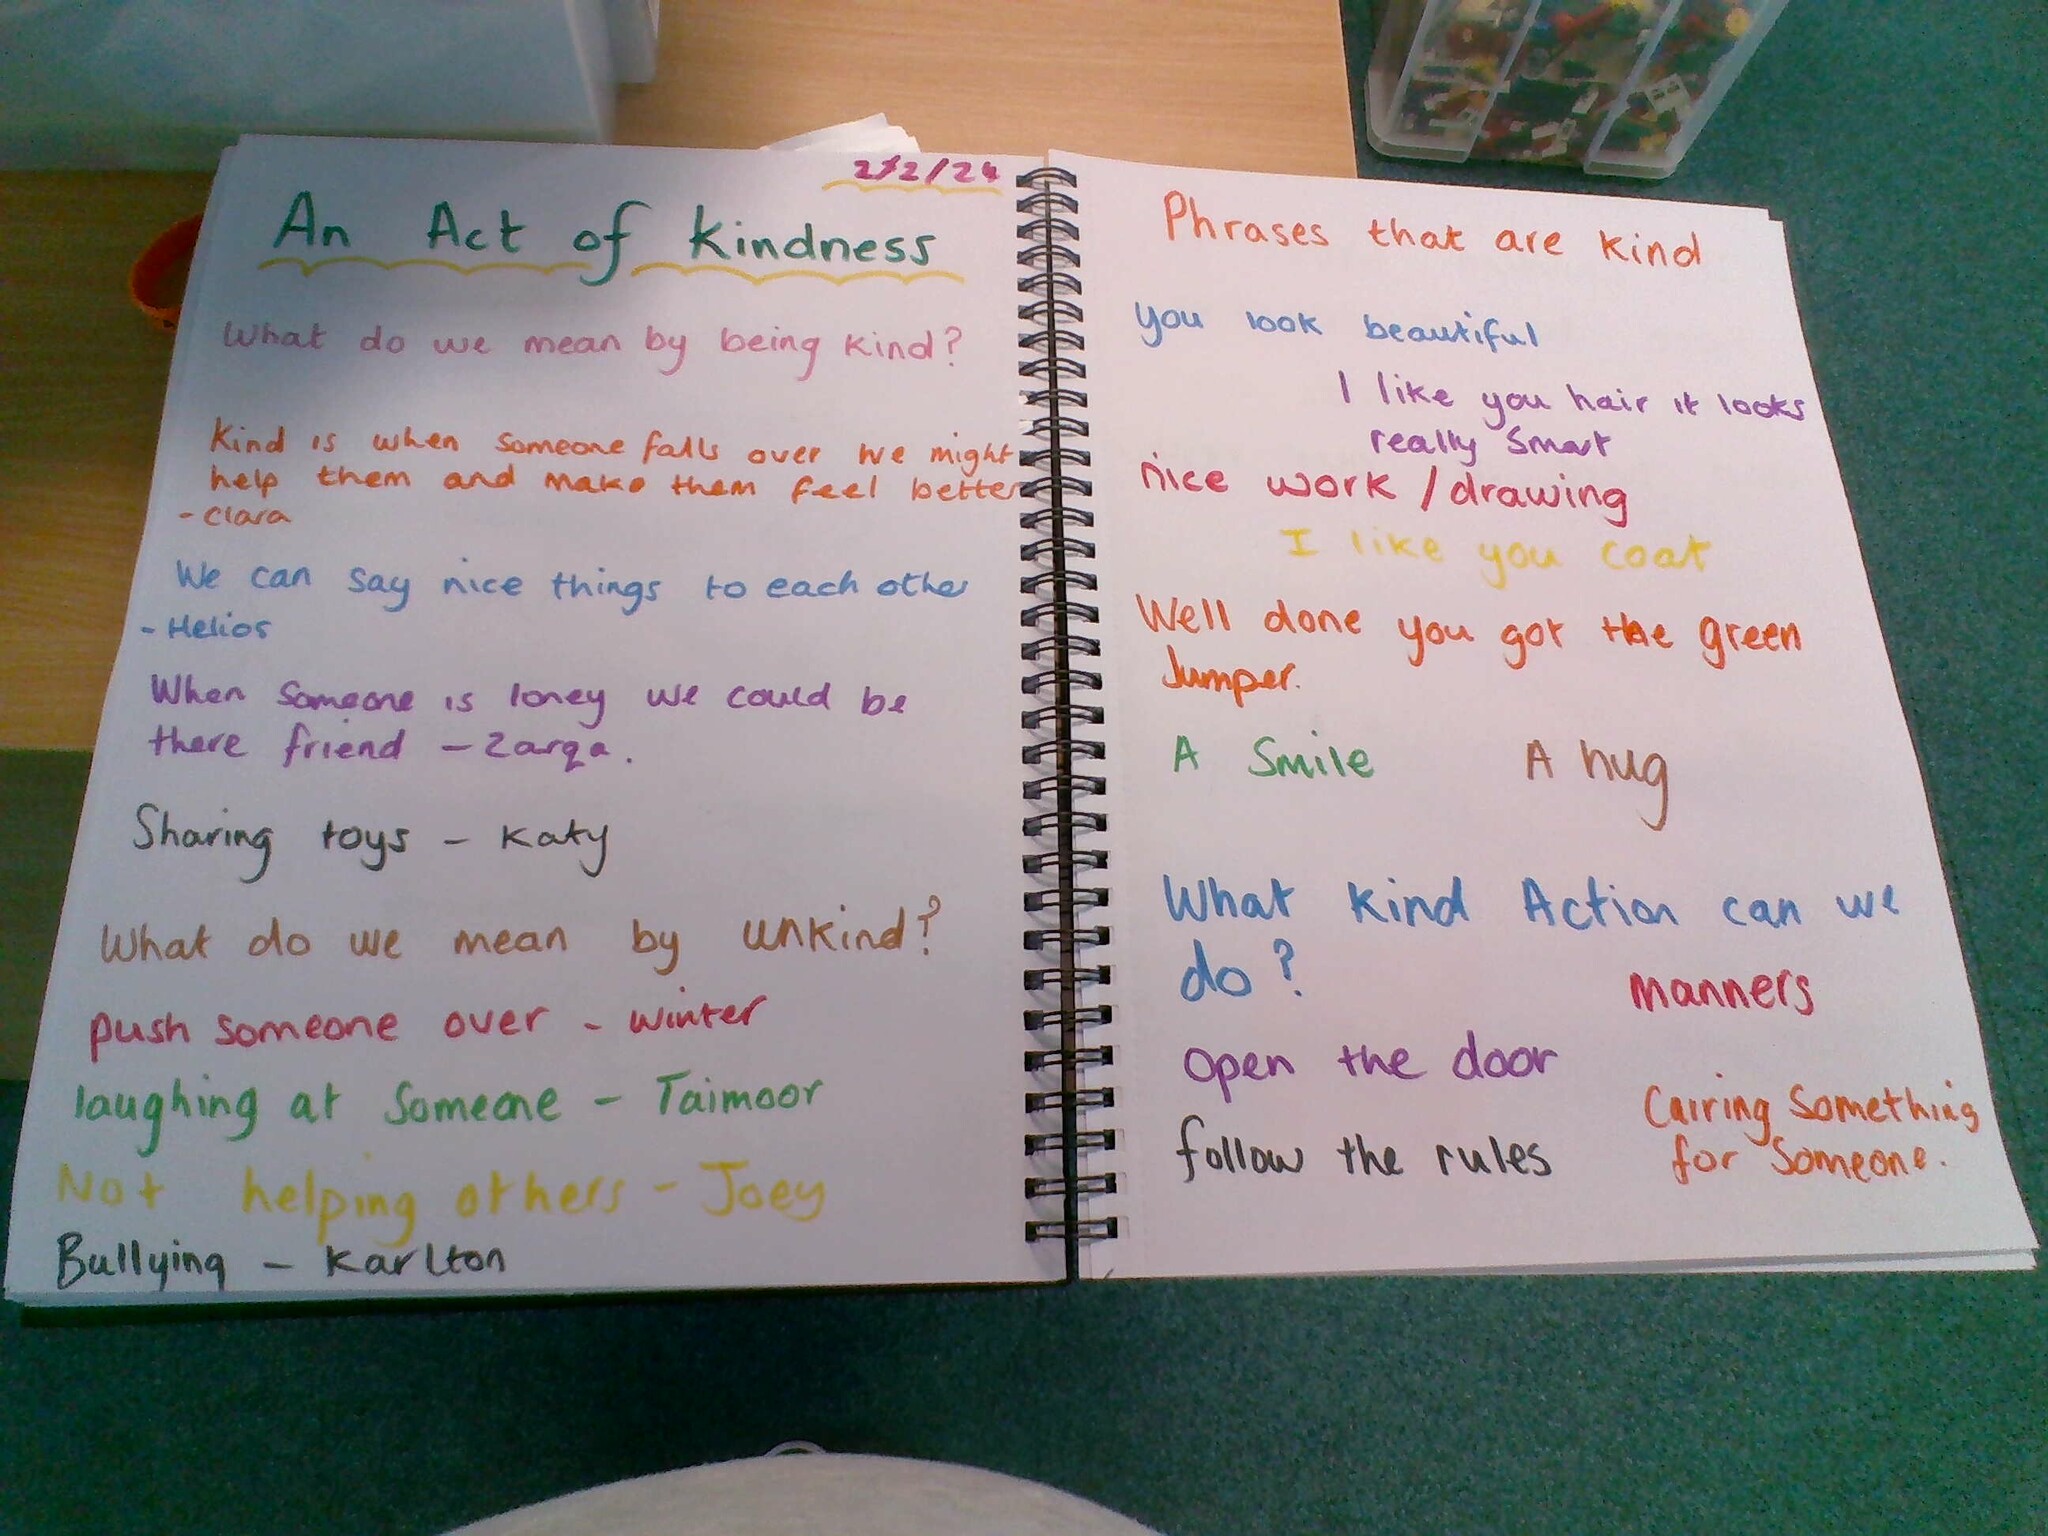 2/2/24
An Act of kindness
What do we mean by being kind?
Kind is when someone falls over we might
help them and make them feel better
- Clara
We can say nice things to each other
- Helios
When someone is loney we could be
there friend - Zarqa.
Sharing toys - Katy
What do we mean by unkind?
push someone over - winter
laughing at someone - Taimoor
Not helping others - Joey
Bullying - Karlton
Phrases that are kind
you look beautiful
I like you hair it looks
really smart
nice work / drawing
I like you coat
Well done you got the green
Jumper.
A Smile A hug
What kind Action can we
do?
manners
open the door
Cairing something
for someone.
follow the rules